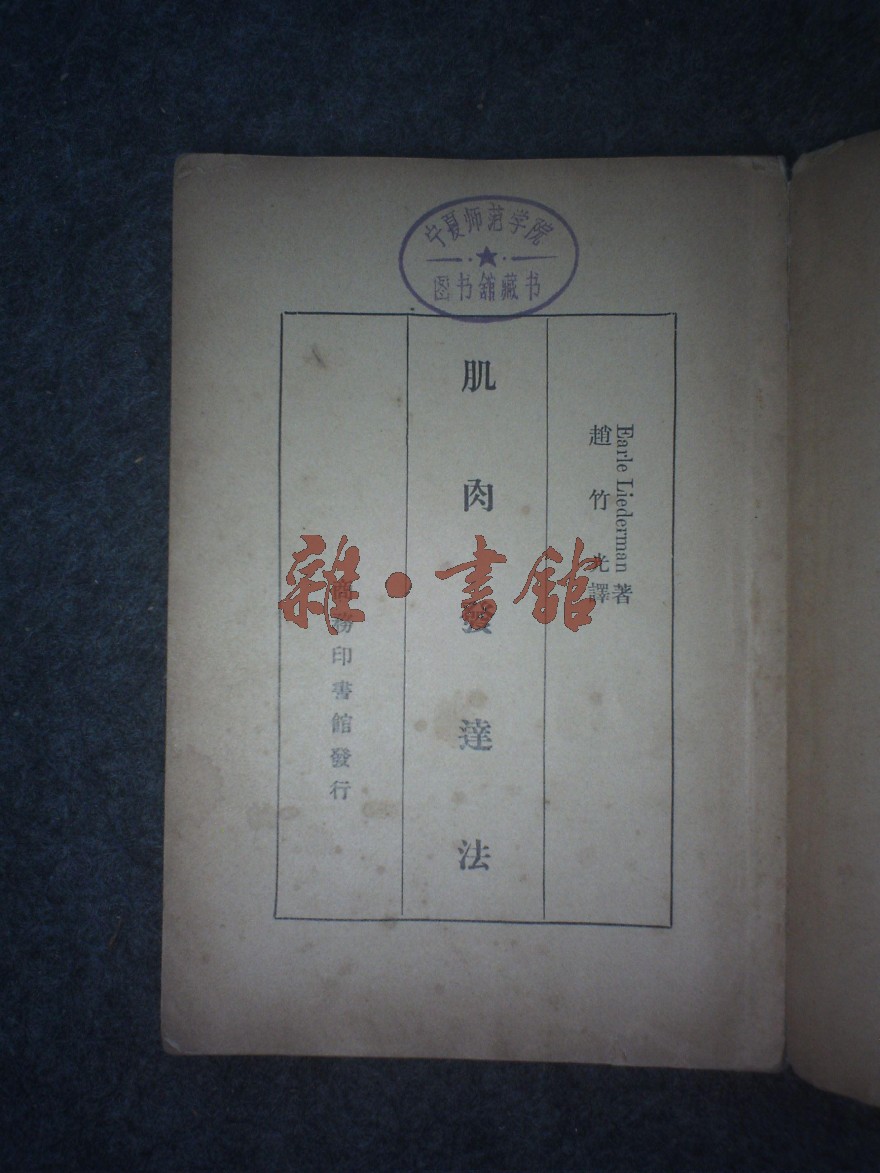 宁夏师范学院
图书馆藏书
Earle Liederman 著
趙竹光譯
肌肉發達法
商務印書館發行
雜·書館